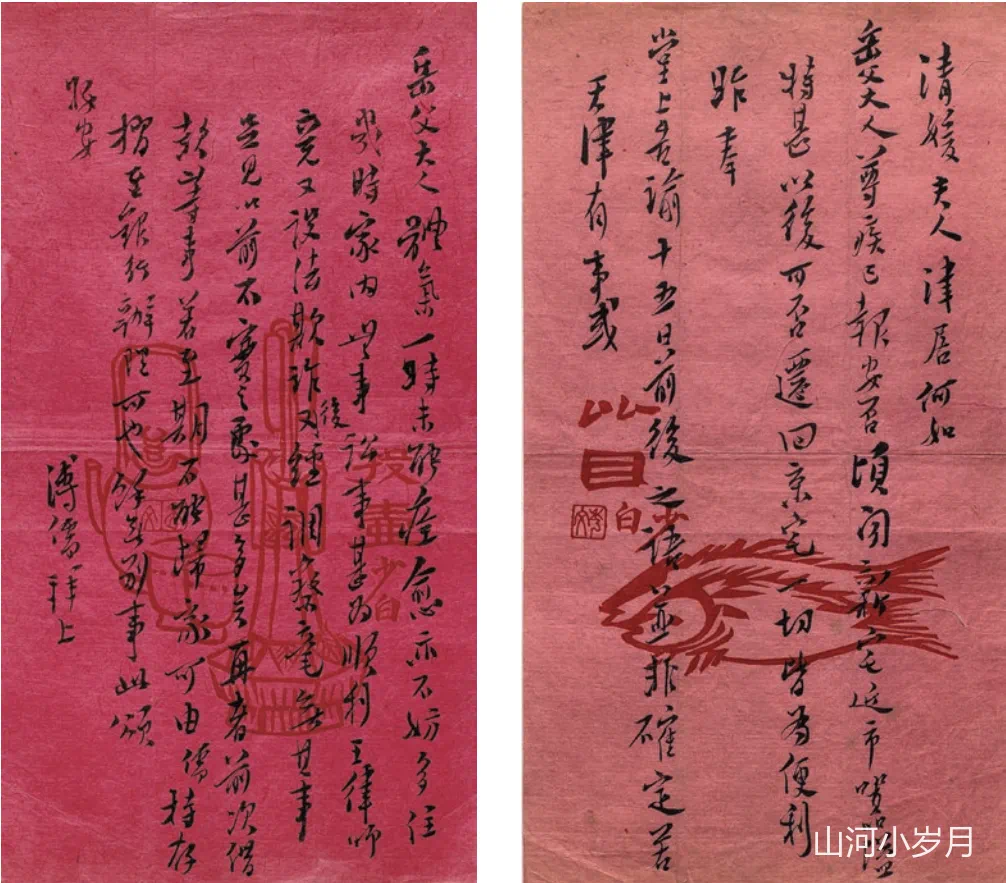 清媛夫人津居何如
岳父大人尊疾已報安否頃聞新宅近市喧囂
特甚以後可否遷回京宅一切皆為便利
昨奉
堂上手諭十五日前後之語並非確定若
天津有事或
岳父大人體氣一時未能痊愈亦不妨多住
幾時家內無事後訟事甚為順利王律師
竟又設法欺詐又經調查毫無其事
足見以前不實之處甚多矣再者前次借
彭等事若至期不能歸家可由儒持存
摺至銀行辦理可也餘無別事此頌
時安
溥儒拜上
目
白
山河小岁月